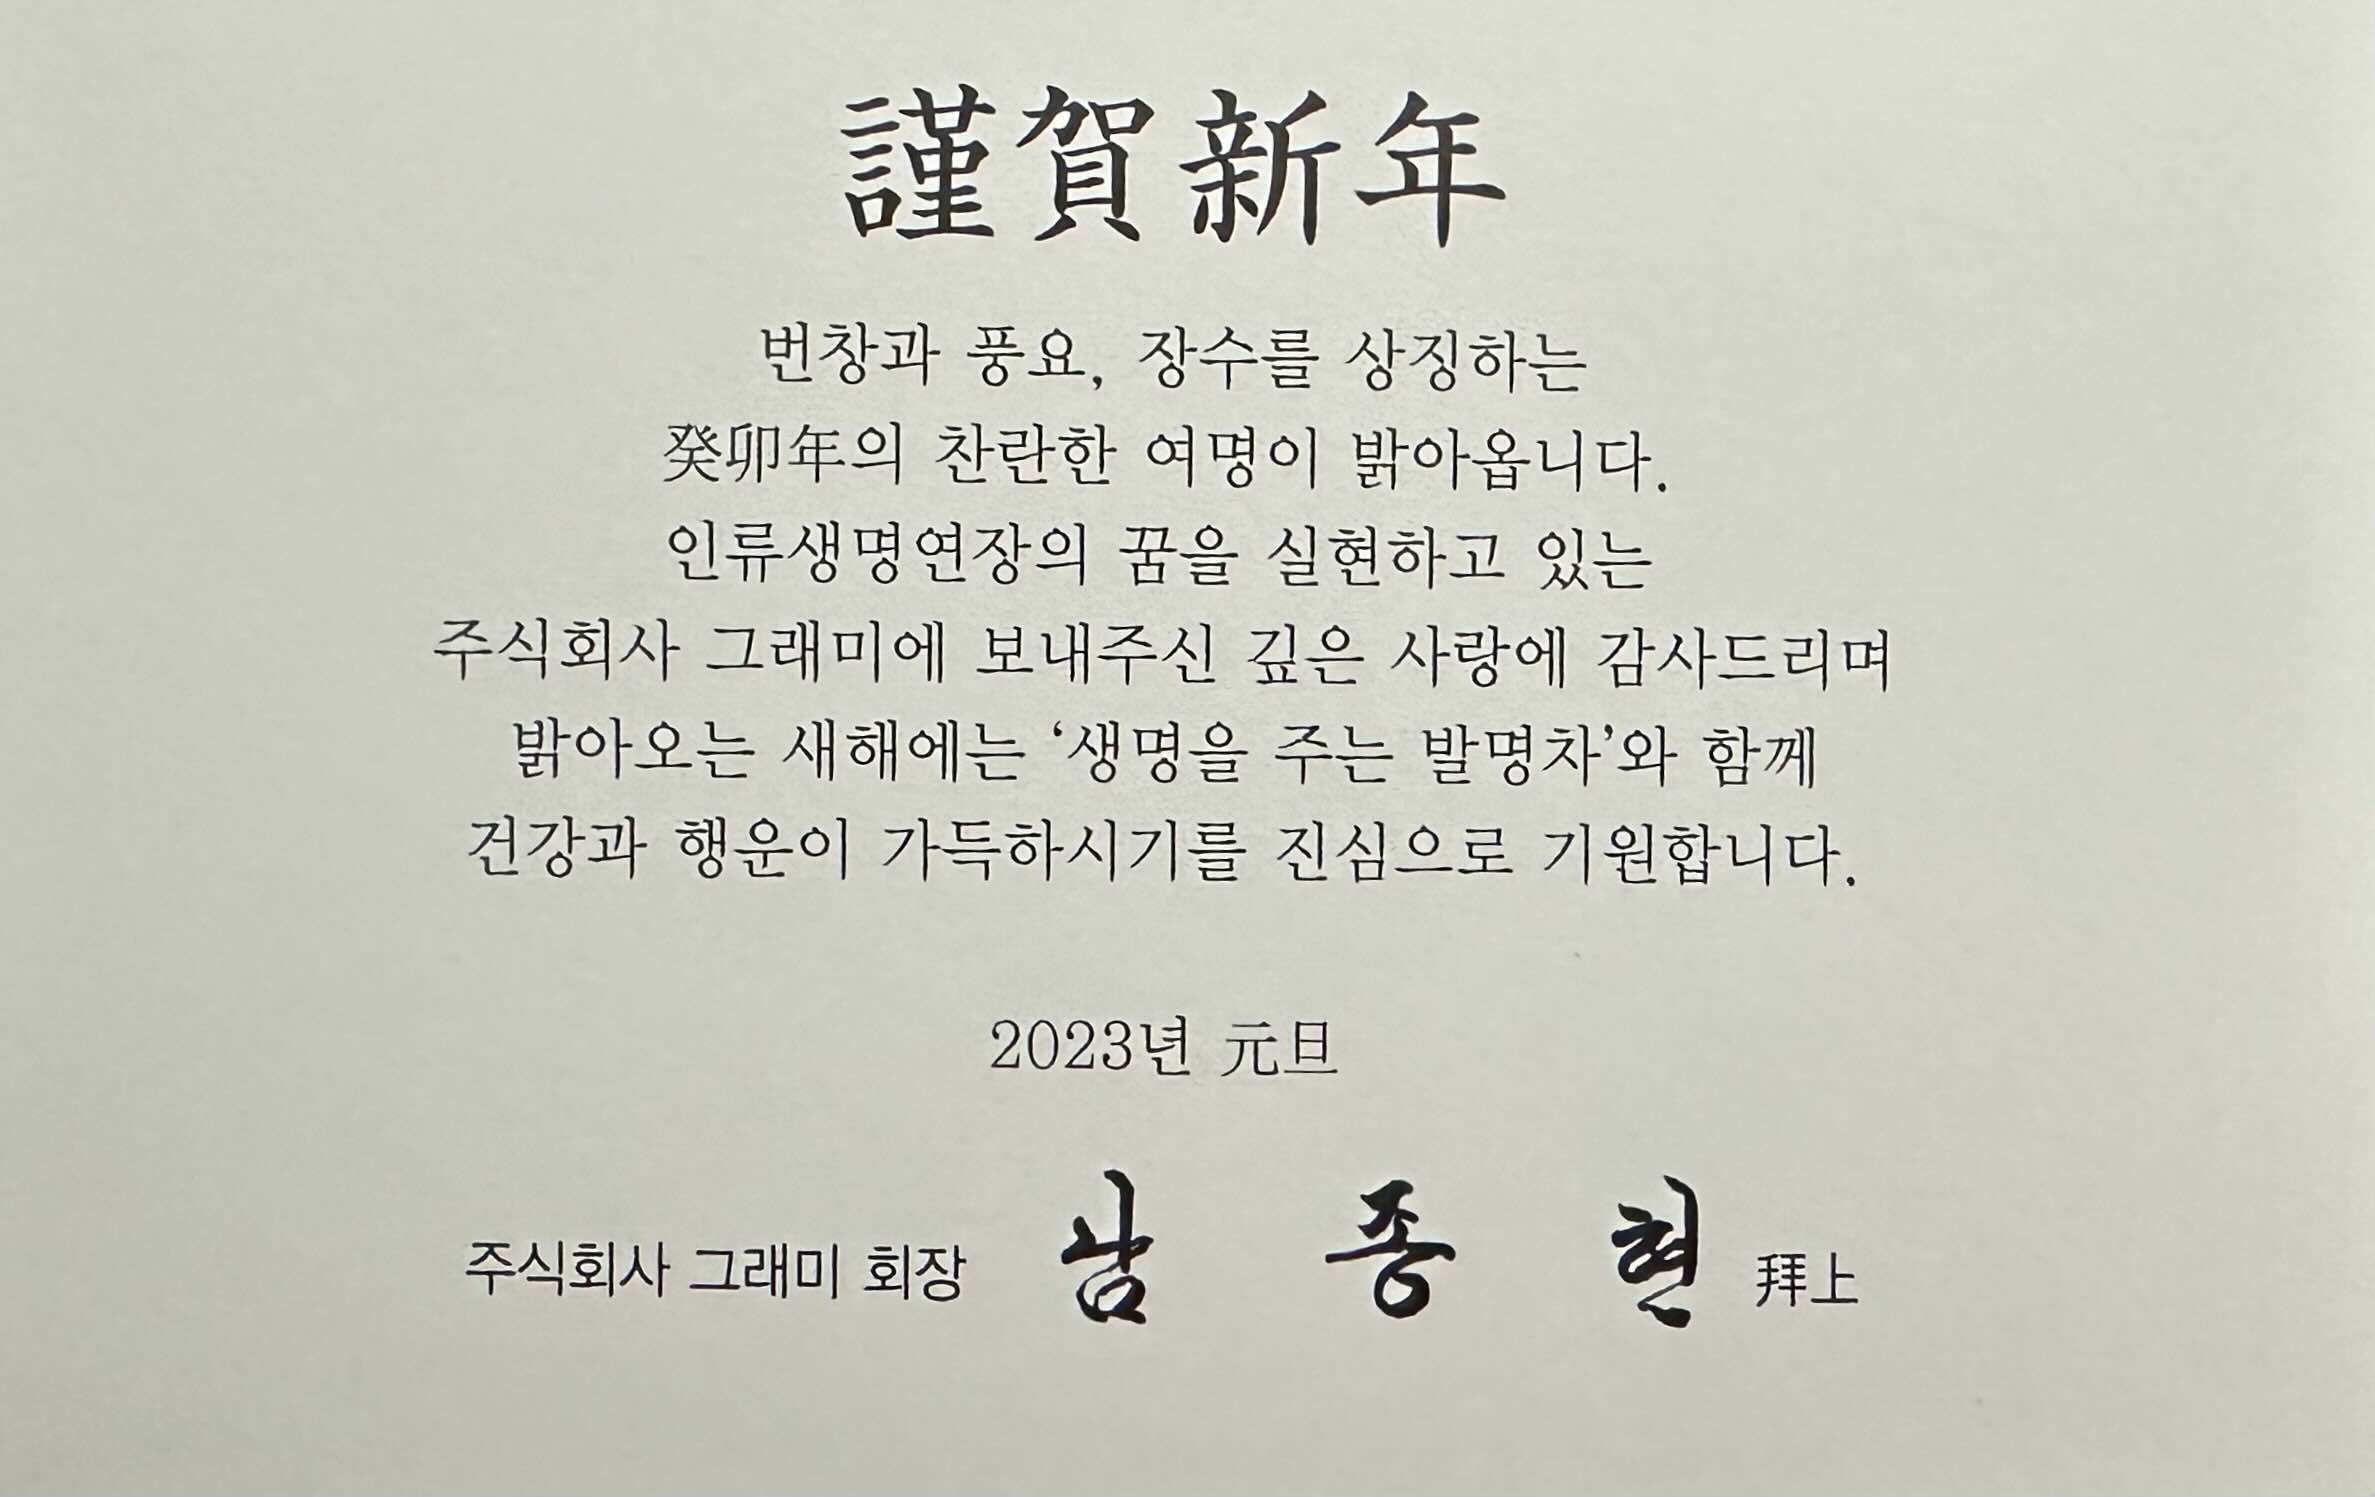 謹賀新年
번창과 풍요, 장수를 상징하는
癸卯年의 찬란한 여명이 밝아옵니다.
인류생명연장의 꿈을 실현하고 있는
주식회사 그래미에 보내주신 깊은 사랑에 감사드리며
밝아오는 새해에는 ‘생명을 주는 발명차’와 함께
건강과 행운이 가득하시기를 진심으로 기원합니다.
2023년 元旦
주식회사 그래미 회장 남 종 현 拜上